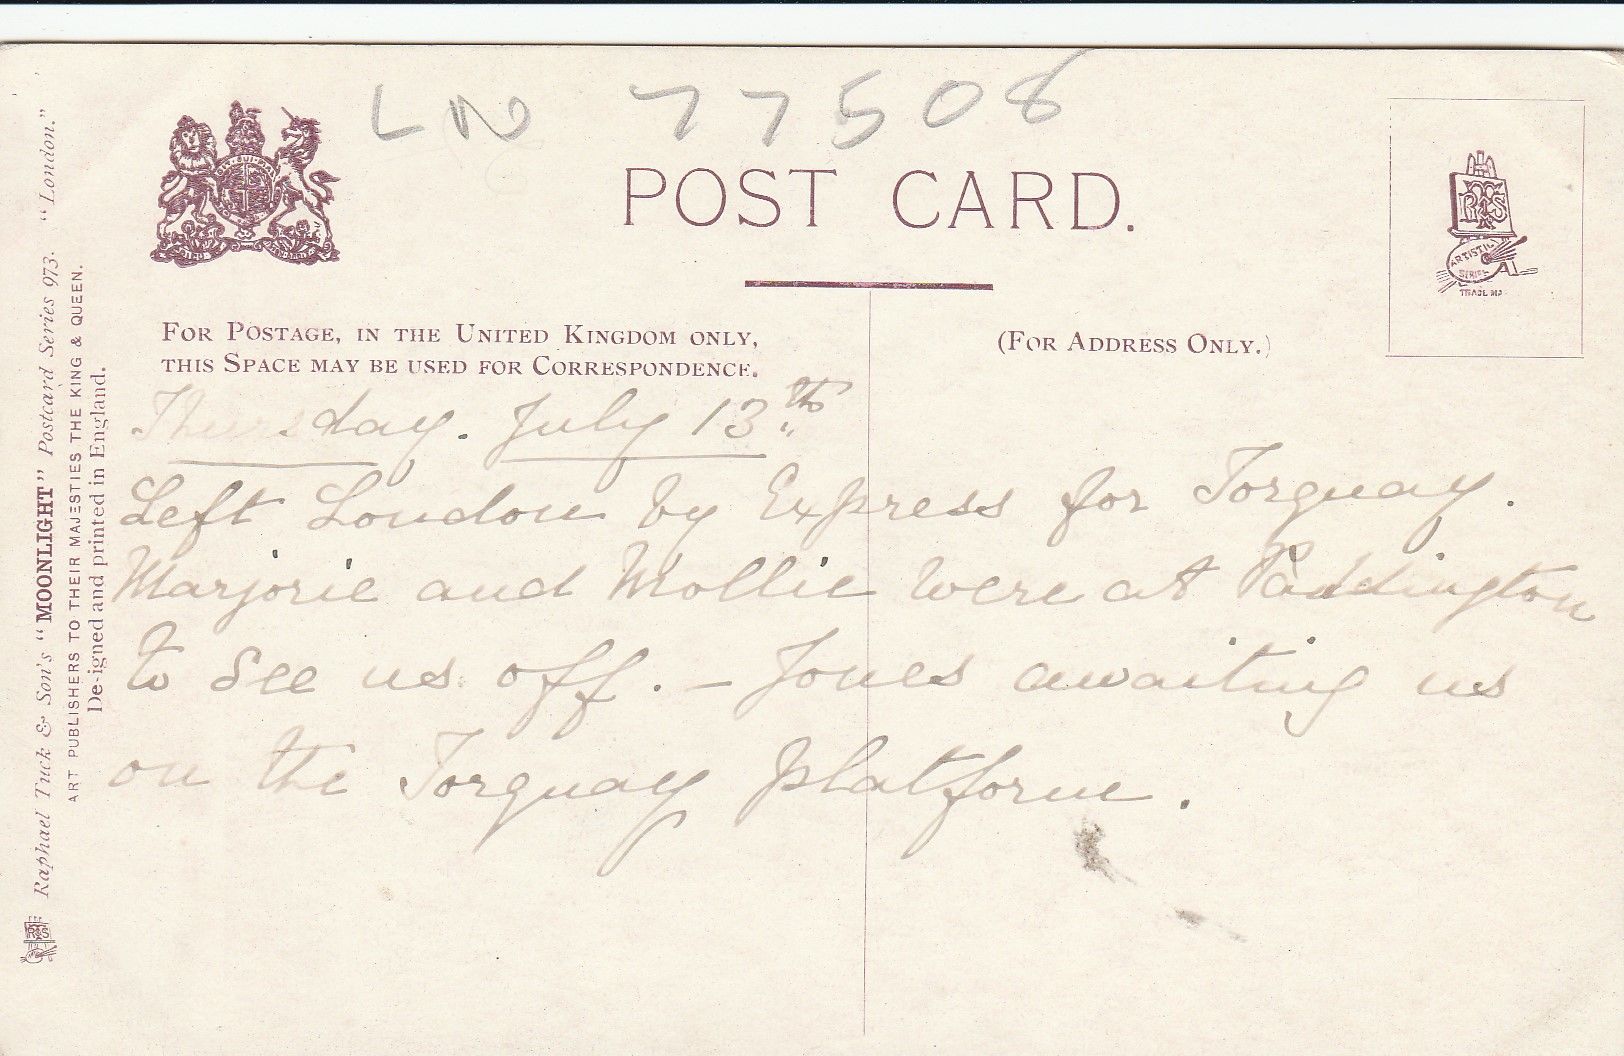 LN 77508
POST CARD.
FOR POSTAGE, IN THE UNITED KINGDOM ONLY,
THIS SPACE MAY BE USED FOR CORRESPONDENCE.
(FOR ADDRESS ONLY.)
ARTISTIC
SERIES
TRADE MK
Thursday. July 13th
Left London by Express for Torquay.
Marjorie and Mollie were at Paddington
to see us off. – Jones awaiting us
on the Torquay platform.
Raphael Tuck & Son's "MOONLIGHT" Postcard Series 973. "London."
ART PUBLISHERS TO THEIR MAJESTIES THE KING & QUEEN.
Designed and printed in England.